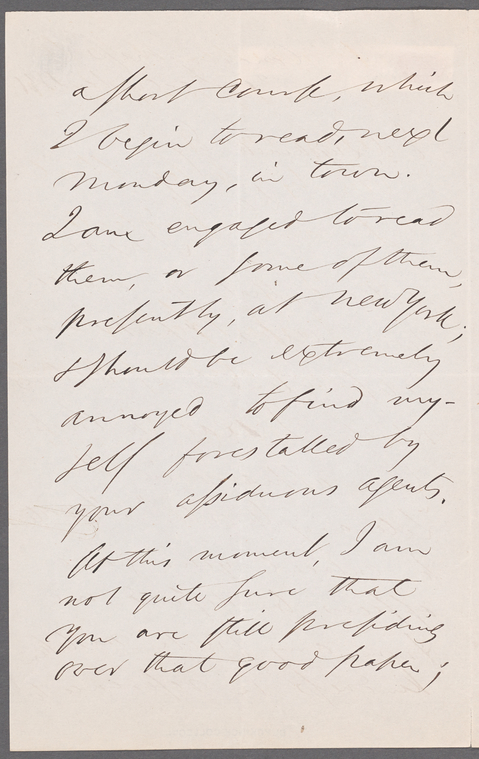 a short course, which
I begin to read, next
Monday, in town.
I am engaged to read
them, or some of them,
presently, at New York;
& should be extremely
annoyed to find my-
self forestalled by
your assiduous agents.
At this moment, I am
not quite sure that
you are still presiding
over that good paper;